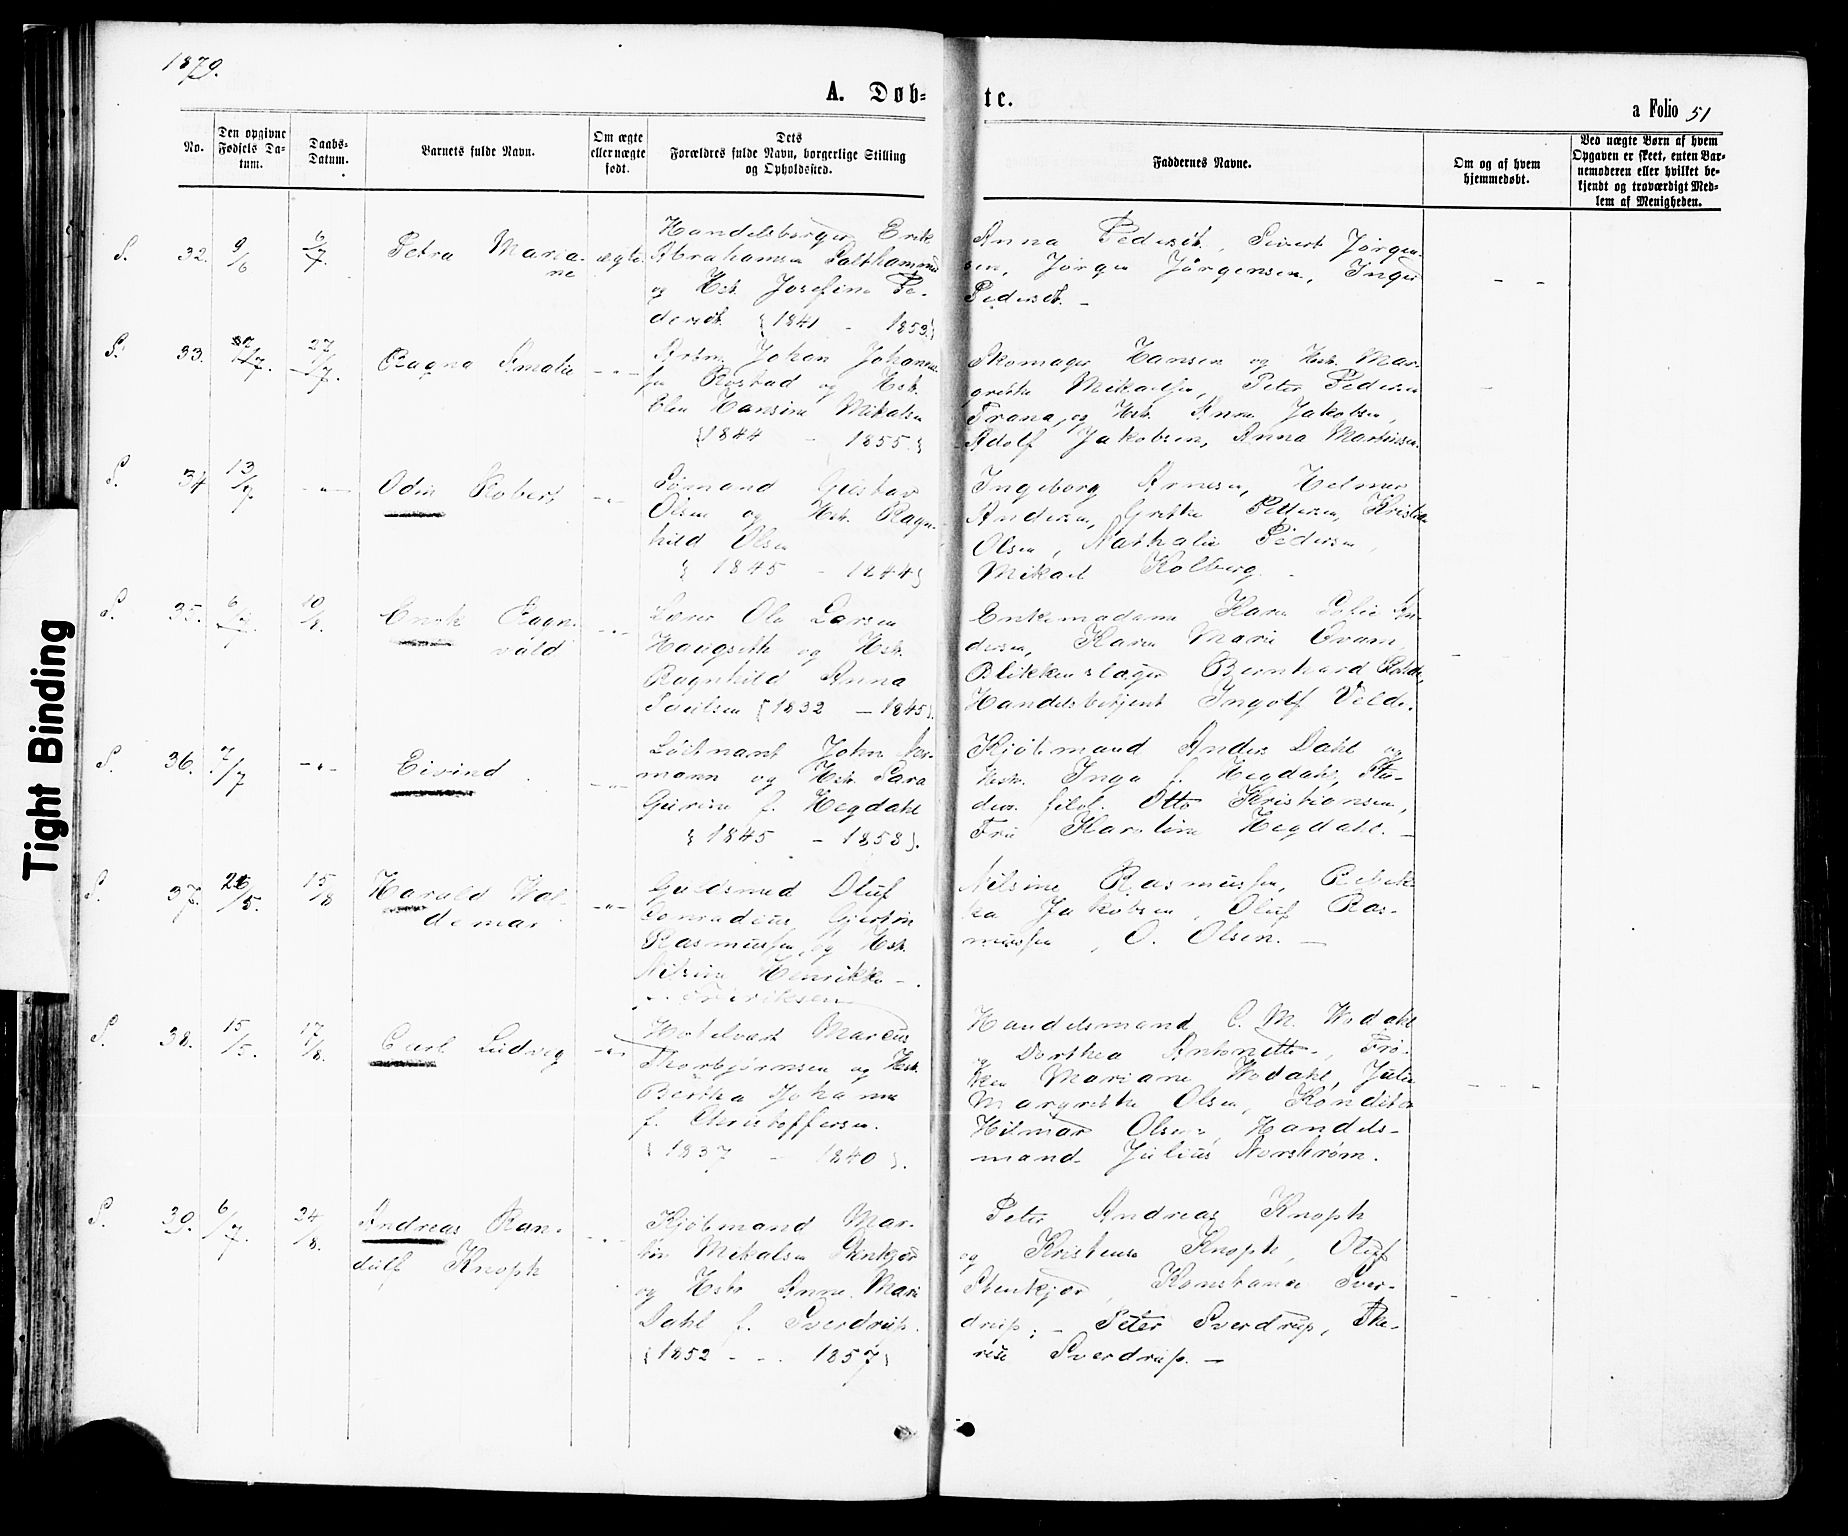 1879.
A. Døb-
te.
a Folio 51
No.
Den opgivne
Fødsels Da-
tum.
Daabs-
Datum.
Barnets fulde Navn.
Om ægte
eller uægte
født.
Dets
Forældres fulde Navn, borgerlige Stilling
og Opholdssted.
Faddernes Navne.
Om og af hvem
hjemmedøbt.
Ved uægte Børn af hvem
Opgaven er skeet, enten Bar-
nemoderen eller hvilket be-
kjendt og troværdigt Med-
lem af Menigheden.
S. 32. 9/6 6/7 Petra Maria-
ne
ægte
Handelsborger Erik
Abrahamsen
og Hst. Josefine Pe-
dersdt. {1841 - 1853}
Anna Pedersdt., Sivert Jørgen-
sen, Jørgen Jørgensen, Inger
Pedersdt. -
- -
S. 33. 27/7. Ragna Amalie - " -
Johan Johanne-
sen Rostad og Hst.
Elen Hansine Mikalsen
{1844 - 1855}
Skomager Hansen og Hst. Mar-
grethe Mikaelsen, Peter Pedersen
Trana, og Hst. Anna Jakobsen,
Adolf Jakobsen, Anna Martinsen.
-
S. 34 13/7. - " - Odin Robert - " -
Sømand Gustav
Olsen og Hst. Ragn-
hild Olsen
{1845 - 1844}
Ingeborg Arnesen, Helmer
Andersen, Grethe Pettersen, Kristian
Olsen, Nathalie Pedersen,
Mikael Kolberg. -
S. 35. 6/7. 10/8. Ragn-
vald
- " -
Lærer Ole Larsen
Haugseth og Hst.
Ragnhild Anna
Paulsen {1832 - 1845}.
Enkemadame Karen An-
dersen, Karen Marie Qvam,
Blikkenslager Bernhard
Handelsbetjent Ingolf Velde.
-
S. 36. 7/7 - " - Eivind. - " -
Løitnant John
mann og Hst. Sara
Gurine f. Hegdahl
{1845 - 1858}.
Kjøbmand Anders Dahl og
Hst. Inga f. Hegdahl, Stu-
dios. filol. Otto Kristiansen,
Frk Karoline Hegdahl. -
S. 37. 26/5. 15/8 Harald Wal-
demar
- " -
Guldsmed Oluf
Conradius
Rasmussen, og Hst.
Nilsine Henrikke -
Nilsine Rasmussen, Rebek-
ka Jakobsen, Oluf Ras-
mussen, O. Olsen. -
S. 38. 15/5. 17/8. Carl Ludvig - " -
Hotelvært Marcus
Thorbjørnsen og Hst.
Bertha Johanna
f. Christoffersen.
{1837 - 1840}.
Handelsmand C. M. Wodahl
og Dorthea Antonette, Frø-
ken Mariane Wodahl, Julie
Margrethe Olsen, Konditor
Hilmar Olsen, Handels-
mand Julius Norstrøm.
- - -
S. 39. 6/7. 24/8. Andreas Ran-
dulf Knoph
- " -
Kjøbmand Mar-
tin Mikalsen Stenkjær
og Hst. Anne Marie
Dahl f. Sverdrup.
{1852 - . 1857}
Peter Andreas Knoph
og Kristense Knoph, Oluf
Stenkjær, Konstanse Sver-
drup; - Peter Sverdrup, The-
rese Sverdrup. -
Tight Binding